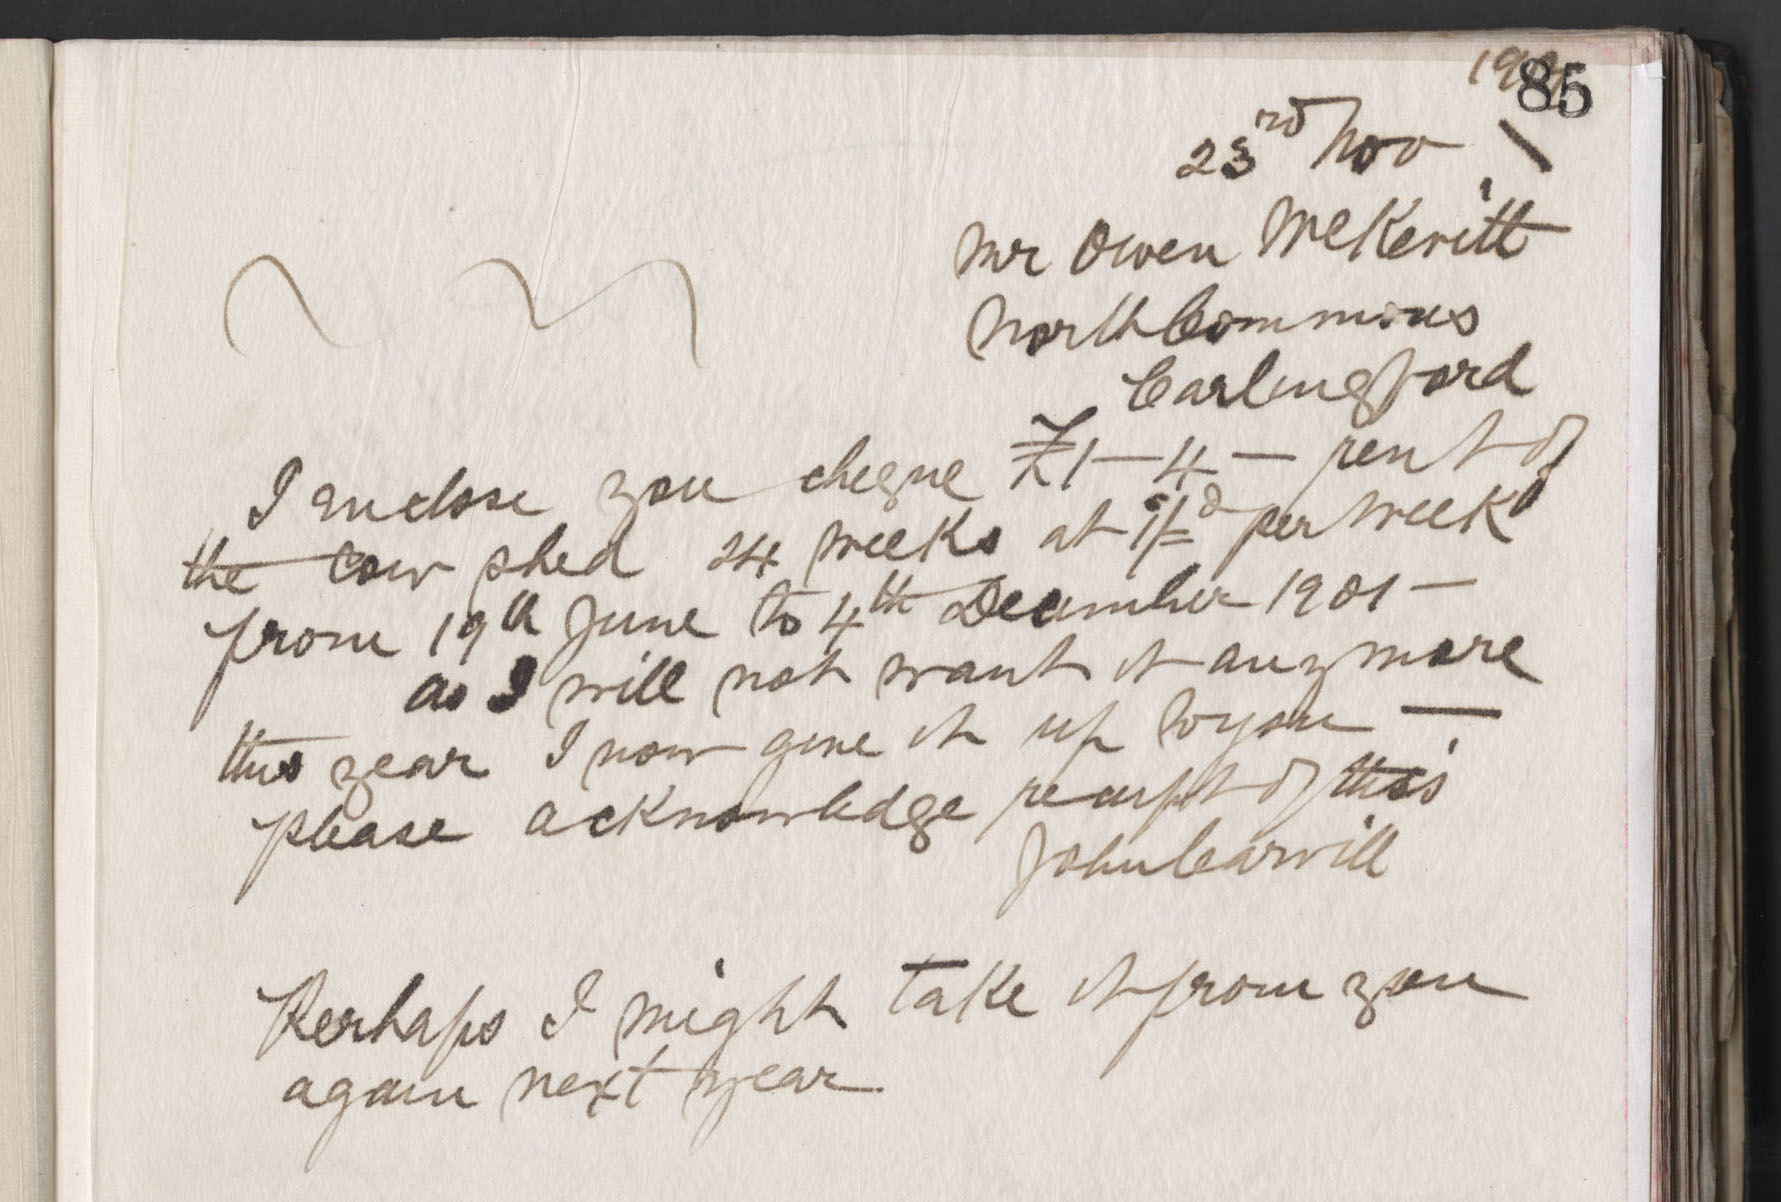 85
23rd Nov
Mr Owen McKevitt
North Commons
Carlingford
I enclose you cheque £1-4- rent of
the cow shed 24 weeks at 1/- per week
from 19th June to 4th December 1901 -
as I will not want it any more
this year I now give it up to you -
please acknowledge receipt of this
John Carvill
Perhaps I might take it from you
again next year